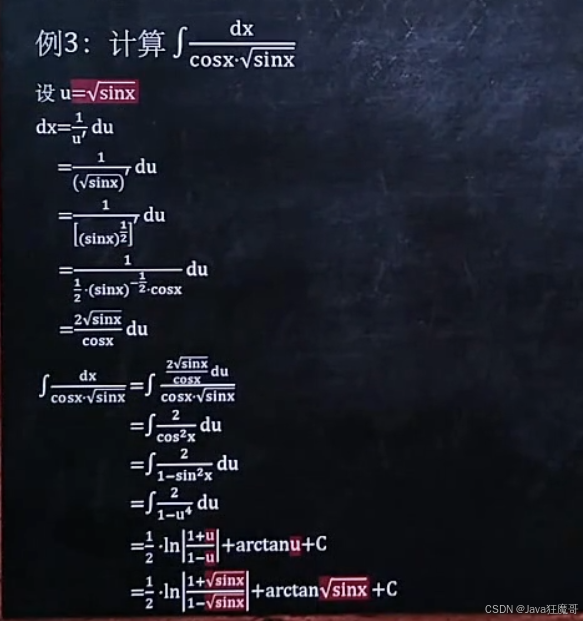 例3：计算 ∫ dx/(cosx·√sinx)
设 u=√sinx
dx=1/u′ du
=1/(√sinx)′ du
=1/[(sinx)^(1/2)]′ du
=1/(1/2·(sinx)^(-1/2)·cosx) du
=2√sinx/cosx du
∫ dx/(cosx·√sinx) =∫ (2√sinx/cosx du)/(cosx·√sinx)
=∫ 2/cos²x du
=∫ 2/(1-sin²x) du
=∫ 2/(1-u⁴) du
=1/2·ln|(1+u)/(1-u)|+arctanu+C
=1/2·ln|(1+√sinx)/(1-√sinx)|+arctan√sinx+C
CSDN @Java狂魔哥